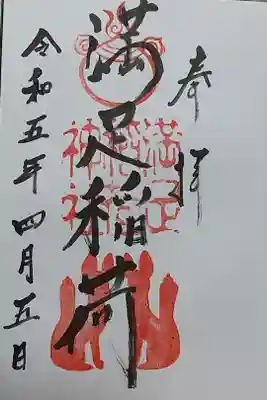 奉拝
満足稲荷
満足稲荷神社
令和五年四月五日